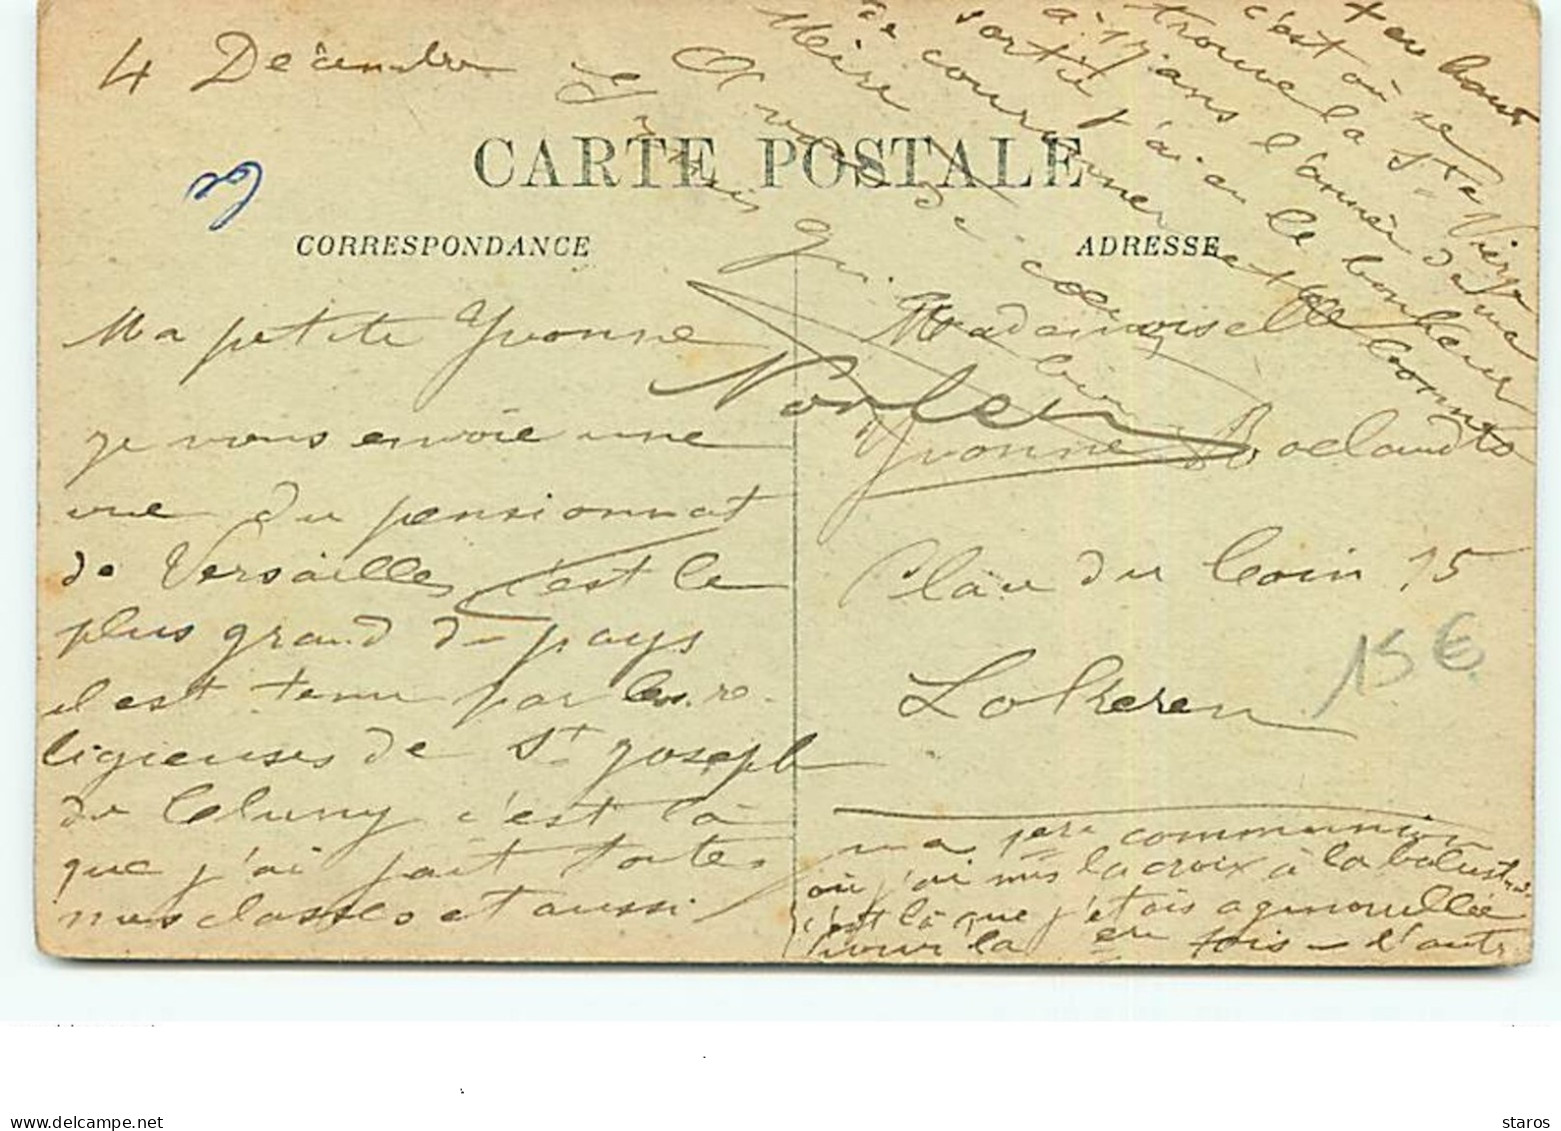 4 Décembre
CARTE POSTALE
CORRESPONDANCE
ADRESSE
Ma petite Yvonne
je vous envoie une
vue du pensionnat
de Versailles c'est le
plus grand du pays
il est tenu par les re-
ligieuses de St Joseph
de Cluny c'est là
que j'ai fait toutes
mes classes et aussi
ma 1ere communion
où j'ai mis la croix à la balust
c'est là que j'étais agenouillée
pour la ere fois - l'aut
+ en haut
c'est où se
trouve la Ste Vierge
à 17 ans l'année de ma
sortie j'ai eu le bonheur
de couronner cette bonne
Mère
qui
Mademoiselle
Yvonne Roelandts
Place du Coin 15
Lokeren
15 €
delcampe.net
staros